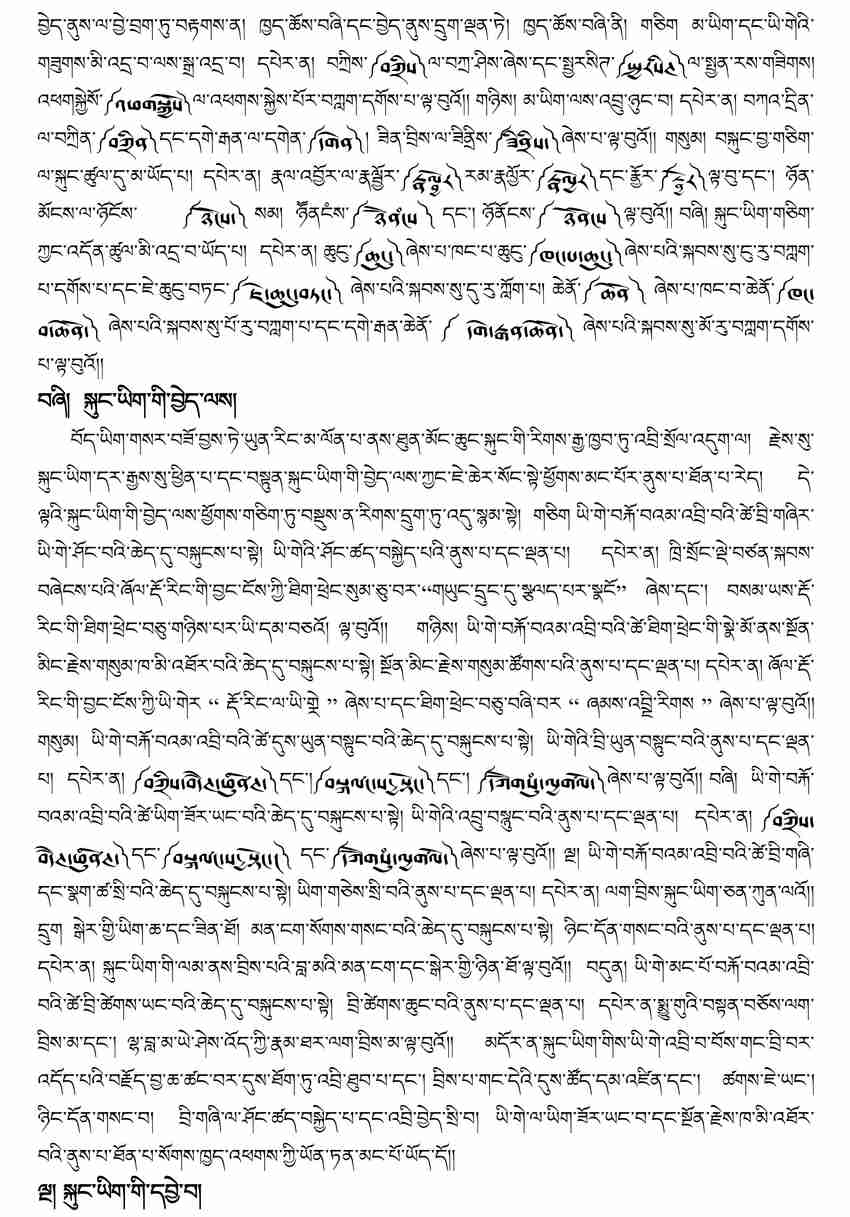 བྱེད་ནུས་ལ་བྱེ་བྲག་ཏུ་བརྟགས་ན། ཁྱད་ཆོས་བཞི་དང་བྱེད་ནུས་དྲུག་ལྡན་ཏེ། ཁྱད་ཆོས་བཞི་ནི། གཅིག མ་ཡིག་དང་ཡི་གེའི་
གཟུགས་མི་འདྲ་བ་ལས་སྒྲ་འདྲ་བ། དཔེར་ན། བཀྲིས་ ལ་བཀྲ་ཤིས་ཞེས་དང་སྤྱརསིཊ་ ལ་སྤྱན་རས་གཟིགས།
འཕགསྐྱེསོ་ ལ་འཕགས་སྐྱེས་པོར་བཀླག་དགོས་པ་ལྟ་བུའོ།། གཉིས། མ་ཡིག་ལས་འབྲུ་ཉུང་བ། དཔེར་ན། བཀའ་དྲིན་
ལ་བཀྲིན་ དང་དགེ་རྒན་ལ་དགེན་ ། ཟིན་བྲིས་ལ་ཟིནྲིས་ ཞེས་པ་ལྟ་བུའོ།། གསུམ། བསྐུང་བྱ་གཅིག་
ལ་སྐུང་ཚུལ་དུ་མ་ཡོད་པ། དཔེར་ན། རྣལ་འབྱོར་ལ་རྣལྱོར་ རམ་རྣལྱོར་ དང་རྣྱོར་ ལྟ་བུ་དང་། ཉོན་
མོངས་ལ་ཉོངོས་ སམ། ཉོནངས་ དང་། ཉོནོངས་ ལྟ་བུའོ།། བཞི། སྐུང་ཡིག་གཅིག་
ཀྱང་འདོན་ཚུལ་མི་འདྲ་བ་ཡོད་པ། དཔེར་ན། ཆུངུ་ ཞེས་པ་ཁང་པ་ཆུངུ་ ཞེས་པའི་སྐབས་སུ་ངུ་རུ་བཀླག་
པ་དགོས་པ་དང་ཇེ་ཆུངུ་བཏང་ ཞེས་པའི་སྐབས་སུ་དུ་རུ་ཀློག་པ། ཆེནོ་ ཞེས་པ་ཁང་བ་ཆེནོ་
ཞེས་པའི་སྐབས་སུ་པོ་རུ་བཀླག་པ་དང་དགེ་རྒན་ཆེནོ་ ཞེས་པའི་སྐབས་སུ་མོ་རུ་བཀླག་དགོས་
པ་ལྟ་བུའོ།།
བཞི། སྐུང་ཡིག་གི་བྱེད་ལས།
བོད་ཡིག་གསར་བཟོ་བྱས་ཏེ་ཡུན་རིང་མ་ལོན་པ་ནས་ཐུན་མོང་ཆུང་སྐུང་གི་རིགས་རྒྱ་ཁྱབ་ཏུ་འབྲི་སྲོལ་འདུག་ལ། རྗེས་སུ་
སྐུང་ཡིག་དར་རྒྱས་སུ་ཕྱིན་པ་དང་བསྟུན་སྐུང་ཡིག་གི་བྱེད་ལས་ཀྱང་ཇེ་ཆེར་སོང་སྟེ་ཕྱོགས་མང་པོར་ནུས་པ་ཐོན་པ་རེད། དེ་
ལྟའི་སྐུང་ཡིག་གི་བྱེད་ལས་ཕྱོགས་གཅིག་ཏུ་བསྡུས་ན་རིགས་དྲུག་ཏུ་འདུ་སྙམ་སྟེ། གཅིག ཡི་གེ་བརྐོ་བའམ་འབྲི་བའི་ཚེ་བྲི་གཞིར་
ཡི་གེ་ཤོང་བའི་ཆེད་དུ་བསྐུངས་པ་སྟེ། ཡི་གེའི་ཤོང་ཚད་བསྐྱེད་པའི་ནུས་པ་དང་ལྡན་པ། དཔེར་ན། ཁྲི་སྲོང་ལྡེ་བཙན་སྐབས་
བཞེངས་པའི་ཞོལ་རྡོ་རིང་གི་བྱང་ངོས་ཀྱི་ཐིག་ཕྲེང་སུམ་ཅུ་བར་“གཡུང་དྲུང་དུ་སྩལད་པར་སྣང༹” ཞེས་དང་། བསམ་ཡས་རྡོ་
རིང་གི་ཐིག་ཕྲེང་བཅུ་གཉིས་པར་ཡི་དམ་བཅའོ། ལྟ་བུའོ།། གཉིས། ཡི་གེ་བརྐོ་བའམ་འབྲི་བའི་ཚེ་ཐིག་ཕྲེང་གི་སྣེ་མོ་ནས་སྔོན་
མིང་རྗེས་གསུམ་ཁ་མི་འཐོར་བའི་ཆེད་དུ་བསྐུངས་པ་སྟེ། སྔོན་མིང་རྗེས་གསུམ་ཚོགས་པའི་ནུས་པ་དང་ལྡན་པ། དཔེར་ན། ཞོལ་རྡོ་
རིང་གི་བྱང་ངོས་ཀྱི་ཡི་གེར “ རྡོ་རིང་ལ་ཡི་གེ ” ཞེས་པ་དང་ཐིག་ཕྲེང་བཅུ་བཞི་བར “ ཞམས་འབྲི་རིགས ” ཞེས་པ་ལྟ་བུའོ།།
གསུམ། ཡི་གེ་བརྐོ་བའམ་འབྲི་བའི་ཚེ་དུས་ཡུན་བསྟུང་བའི་ཆེད་དུ་བསྐུངས་པ་སྟེ། ཡི་གེའི་བྲི་ཡུན་བསྟུང་བའི་ནུས་པ་དང་ལྡན་
པ། དཔེར་ན། དང་། དང་། ཞེས་པ་ལྟ་བུའོ།། བཞི། ཡི་གེ་བརྐོ་
བའམ་འབྲི་བའི་ཚེ་ཡིག་ཟོར་ཡང་བའི་ཆེད་དུ་བསྐུངས་པ་སྟེ། ཡི་གེའི་འབྲུ་བསྙུང་བའི་ནུས་པ་དང་ལྡན་པ། དཔེར་ན།
དང་ དང་ ཞེས་པ་ལྟ་བུའོ།། ལྔ། ཡི་གེ་བརྐོ་བའམ་འབྲི་བའི་ཚེ་བྲི་གཞི་
དང་སྣག་ཚ་སྲི་བའི་ཆེད་དུ་བསྐུངས་པ་སྟེ། ཡིག་གཅེས་སྲི་བའི་ནུས་པ་དང་ལྡན་པ། དཔེར་ན། ལག་བྲིས་སྐུང་ཡིག་ཅན་ཀུན་ལའོ།།
དྲུག སྒེར་གྱི་ཡིག་ཆ་དང་ཟིན་ཐོ། མན་ངག་སོགས་གསང་བའི་ཆེད་དུ་བསྐུངས་པ་སྟེ། ཉིང་དོན་གསང་བའི་ནུས་པ་དང་ལྡན་པ།
དཔེར་ན། སྐུང་ཡིག་གི་ལམ་ནས་བྲིས་པའི་བླ་མའི་མན་ངག་དང་སྒེར་གྱི་ཉིན་ཐོ་ལྟ་བུའོ།། བདུན། ཡི་གེ་མང་པོ་བརྐོ་བའམ་འབྲི་
བའི་ཚེ་བྲི་ཚེགས་ཡང་བའི་ཆེད་དུ་བསྐུངས་པ་སྟེ། བྲི་ཚེགས་ཆུང་བའི་ནུས་པ་དང་ལྡན་པ། དཔེར་ན་སྨྱུ་གུའི་བསྟན་བཅོས་ལག་
བྲིས་མ་དང་། ལྷ་བླ་མ་ཡེ་ཤེས་འོད་ཀྱི་རྣམ་ཐར་ལག་བྲིས་མ་ལྟ་བུའོ།། མདོར་ན་སྐུང་ཡིག་གིས་ཡི་གེ་འབྲི་བ་པོས་གང་བྲི་བར་
འདོད་པའི་བརྗོད་བྱ་ཆ་ཚང་བར་དུས་ཐོག་ཏུ་འབྲི་ཐུབ་པ་དང་། བྲིས་པ་གང་དེའི་དུས་ཚོད་དམ་འཛིན་དང་། ཚགས་ཇེ་ཡང་།
ཉིང་དོན་གསང་བ། བྲི་གཞི་ལ་ཤོང་ཚད་བསྐྱེད་པ་དང་འབྲི་བྱེད་སྲི་བ། ཡི་གེ་ལ་ཡིག་ཟོར་ཡང་བ་དང་སྔོན་རྗེས་ཁ་མི་འཐོར་
བའི་ནུས་པ་ཐོན་པ་སོགས་ཁྱད་འཕགས་ཀྱི་ཡོན་ཏན་མང་པོ་ཡོད་དོ།།
ལྔ། སྐུང་ཡིག་གི་དབྱེ་བ།